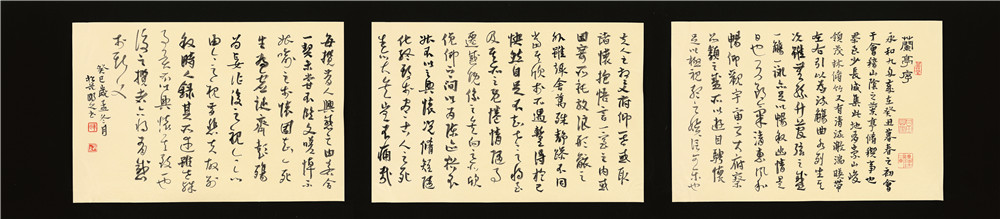 蘭亭序
永和九年歲在癸丑暮春之初會
于會稽山陰之蘭亭脩禊事也
羣賢畢至少長咸集此地有崇山峻
領茂林脩竹又有清流激湍暎帶
左右引以為流觴曲水列坐其
次雖無絲竹管弦之盛
一觴一詠亦足以暢叙幽情是
日也天朗氣清惠風和
暢仰觀宇宙之大俯察
品類之盛所以遊目騁懷
足以極視聽之娛信可樂也
夫人之相與俯仰一世或取
諸懷抱悟言一室之內或
因寄所託放浪形骸之
外雖趣舍萬殊靜躁不同
當其欣於所遇暫得於己
快然自足不知老之將至
及其所之既惓情隨事
遷感慨係之矣向之所欣
俛仰之間以為陳迹猶不
能不以之興懷況脩短隨
化終期於盡古人云死
生亦大矣豈不痛哉
每攬昔人興感之由若合
一契未嘗不臨文嗟悼不
能喻之於懷固知一死
生為虛誕齊彭殤
為妄作後之視今亦
由今之視昔悲夫故列
叙時人錄其所述雖世殊
事異所以興懷其致一也
後之攬者亦將有感
於斯文
癸巳歲孟冬月